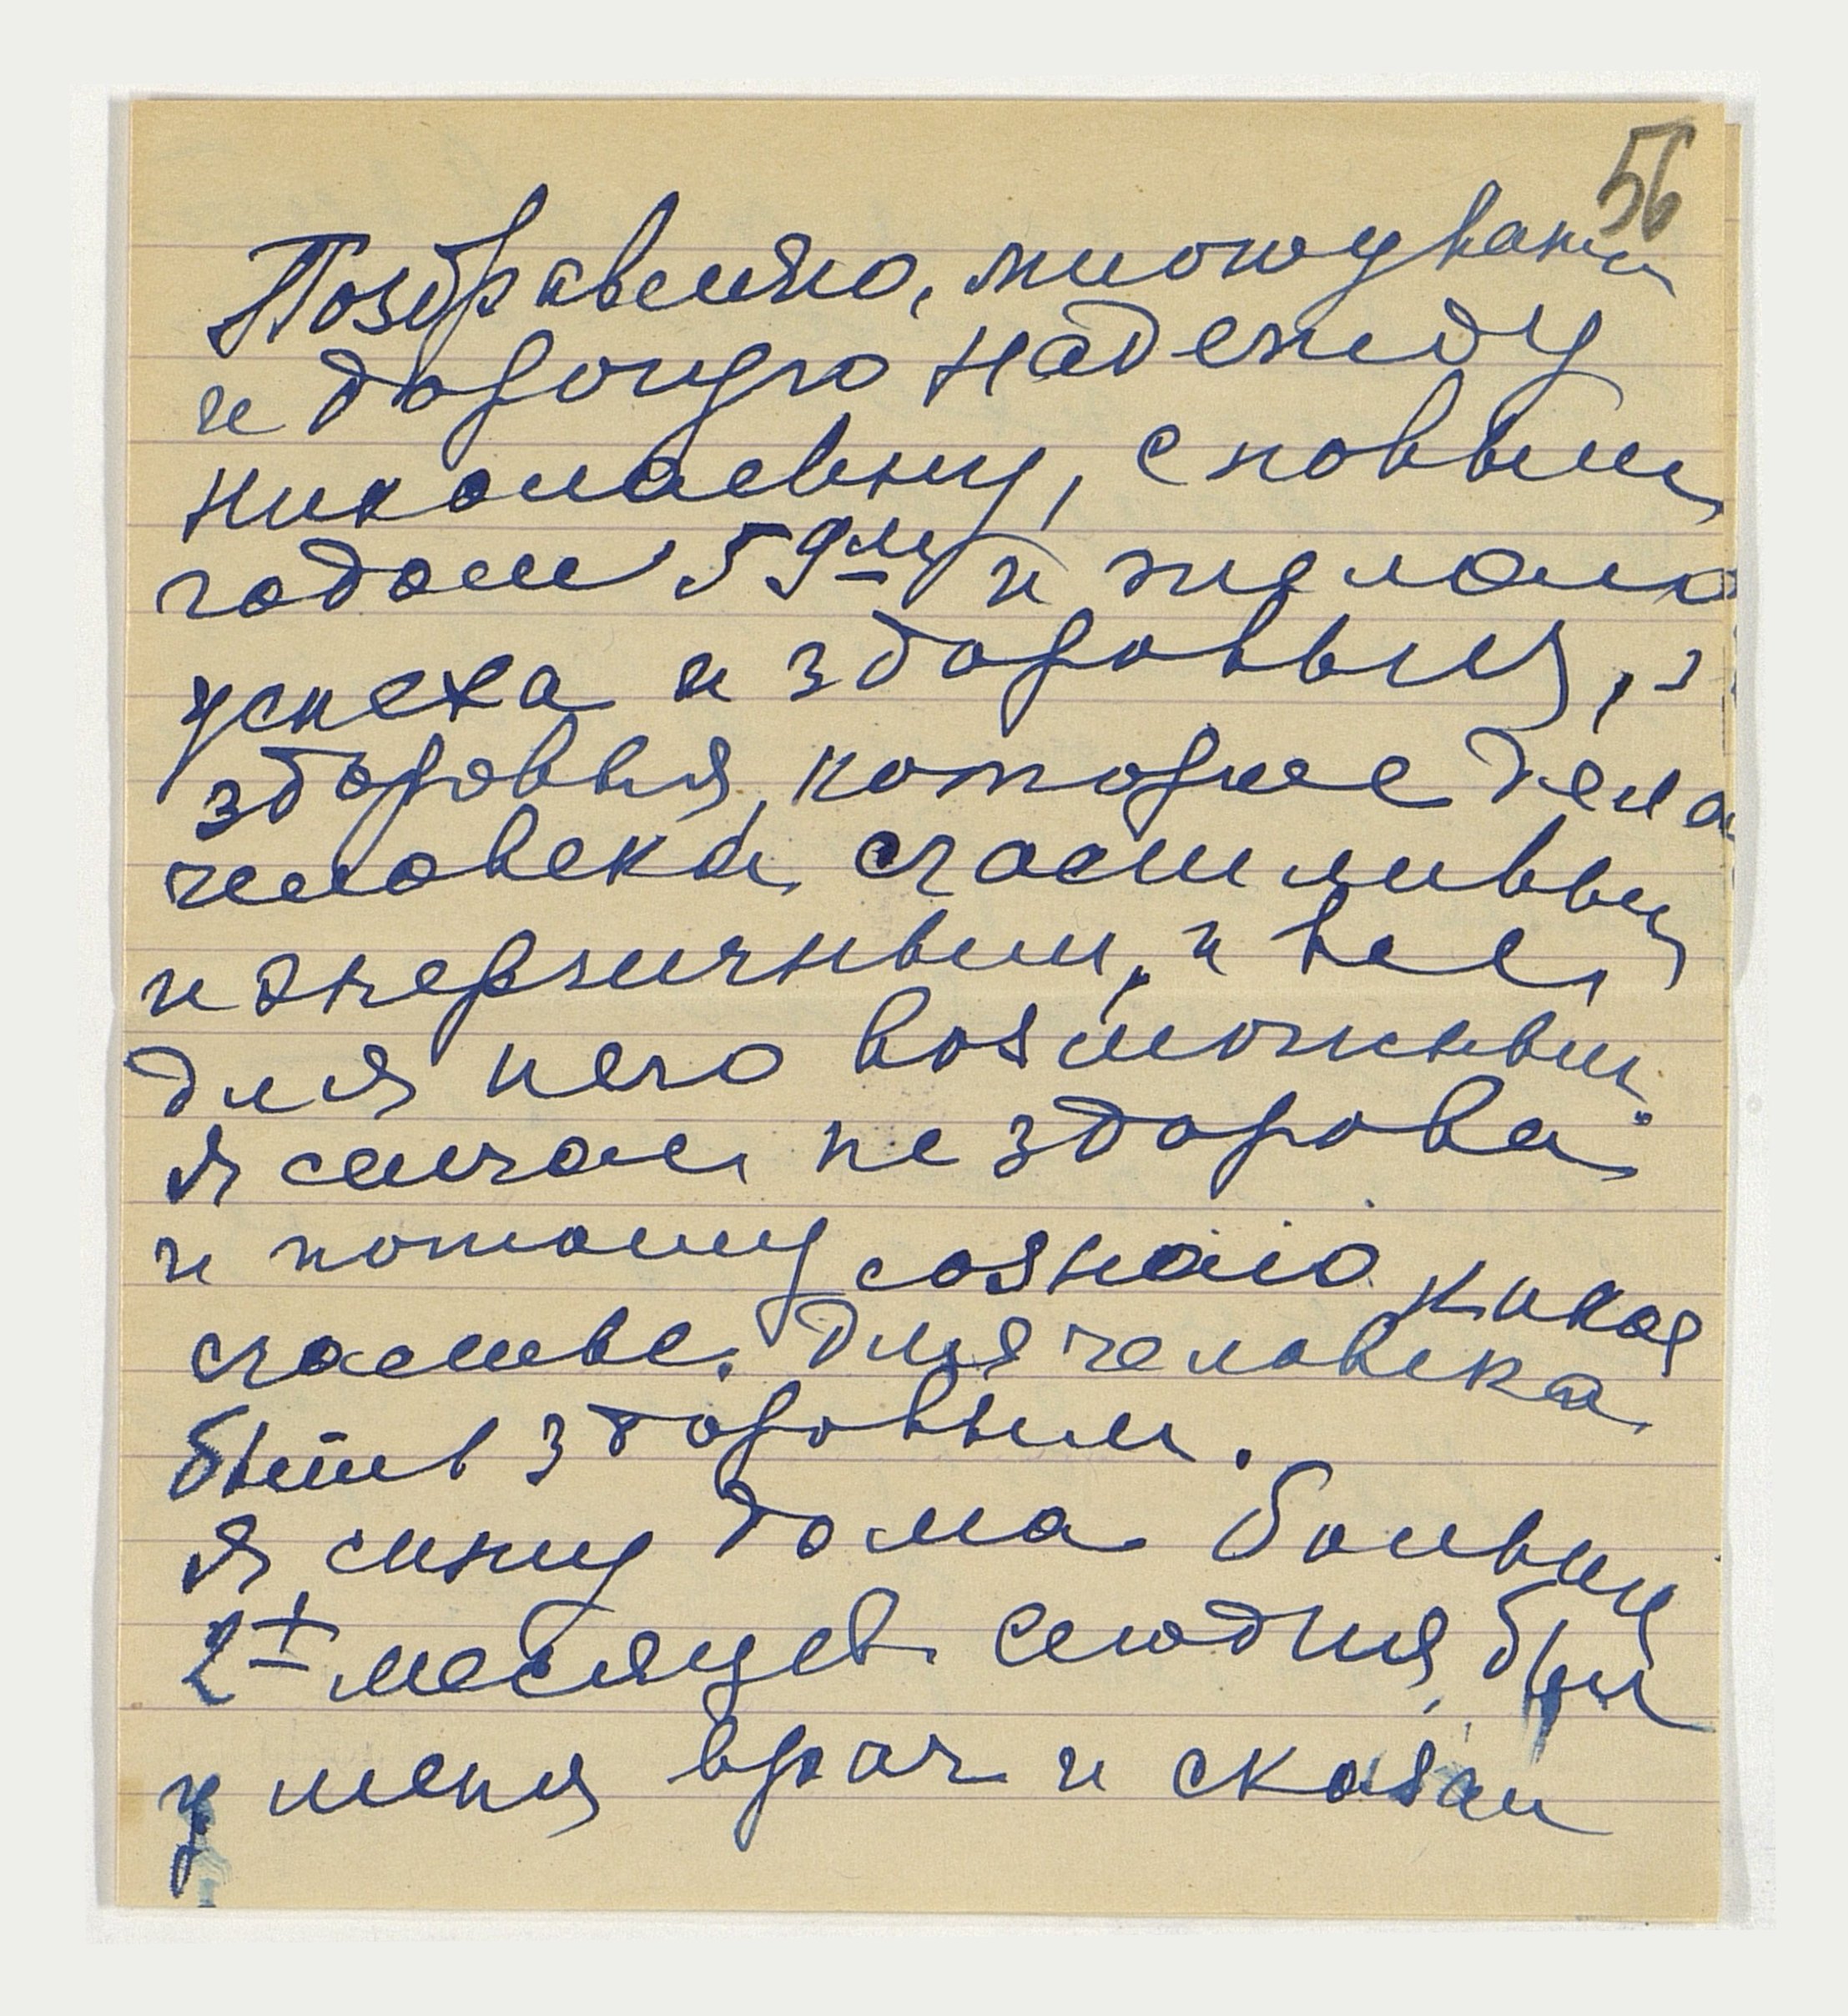 56
Поздравляю, многоуваж
и дорогую Надежду
Николаевну, с новым
годом 59м и желаю
успеха и здоровья,
здоровья, которое дела
человека счастливым
и энергичным, и все
для него возможным.
Я сейчас не здорова
и потому сознаю какое
счастье для человека
быть здоровым.
Я сижу дома больный
2+ месяцев сегодня был
у меня врач и сказал